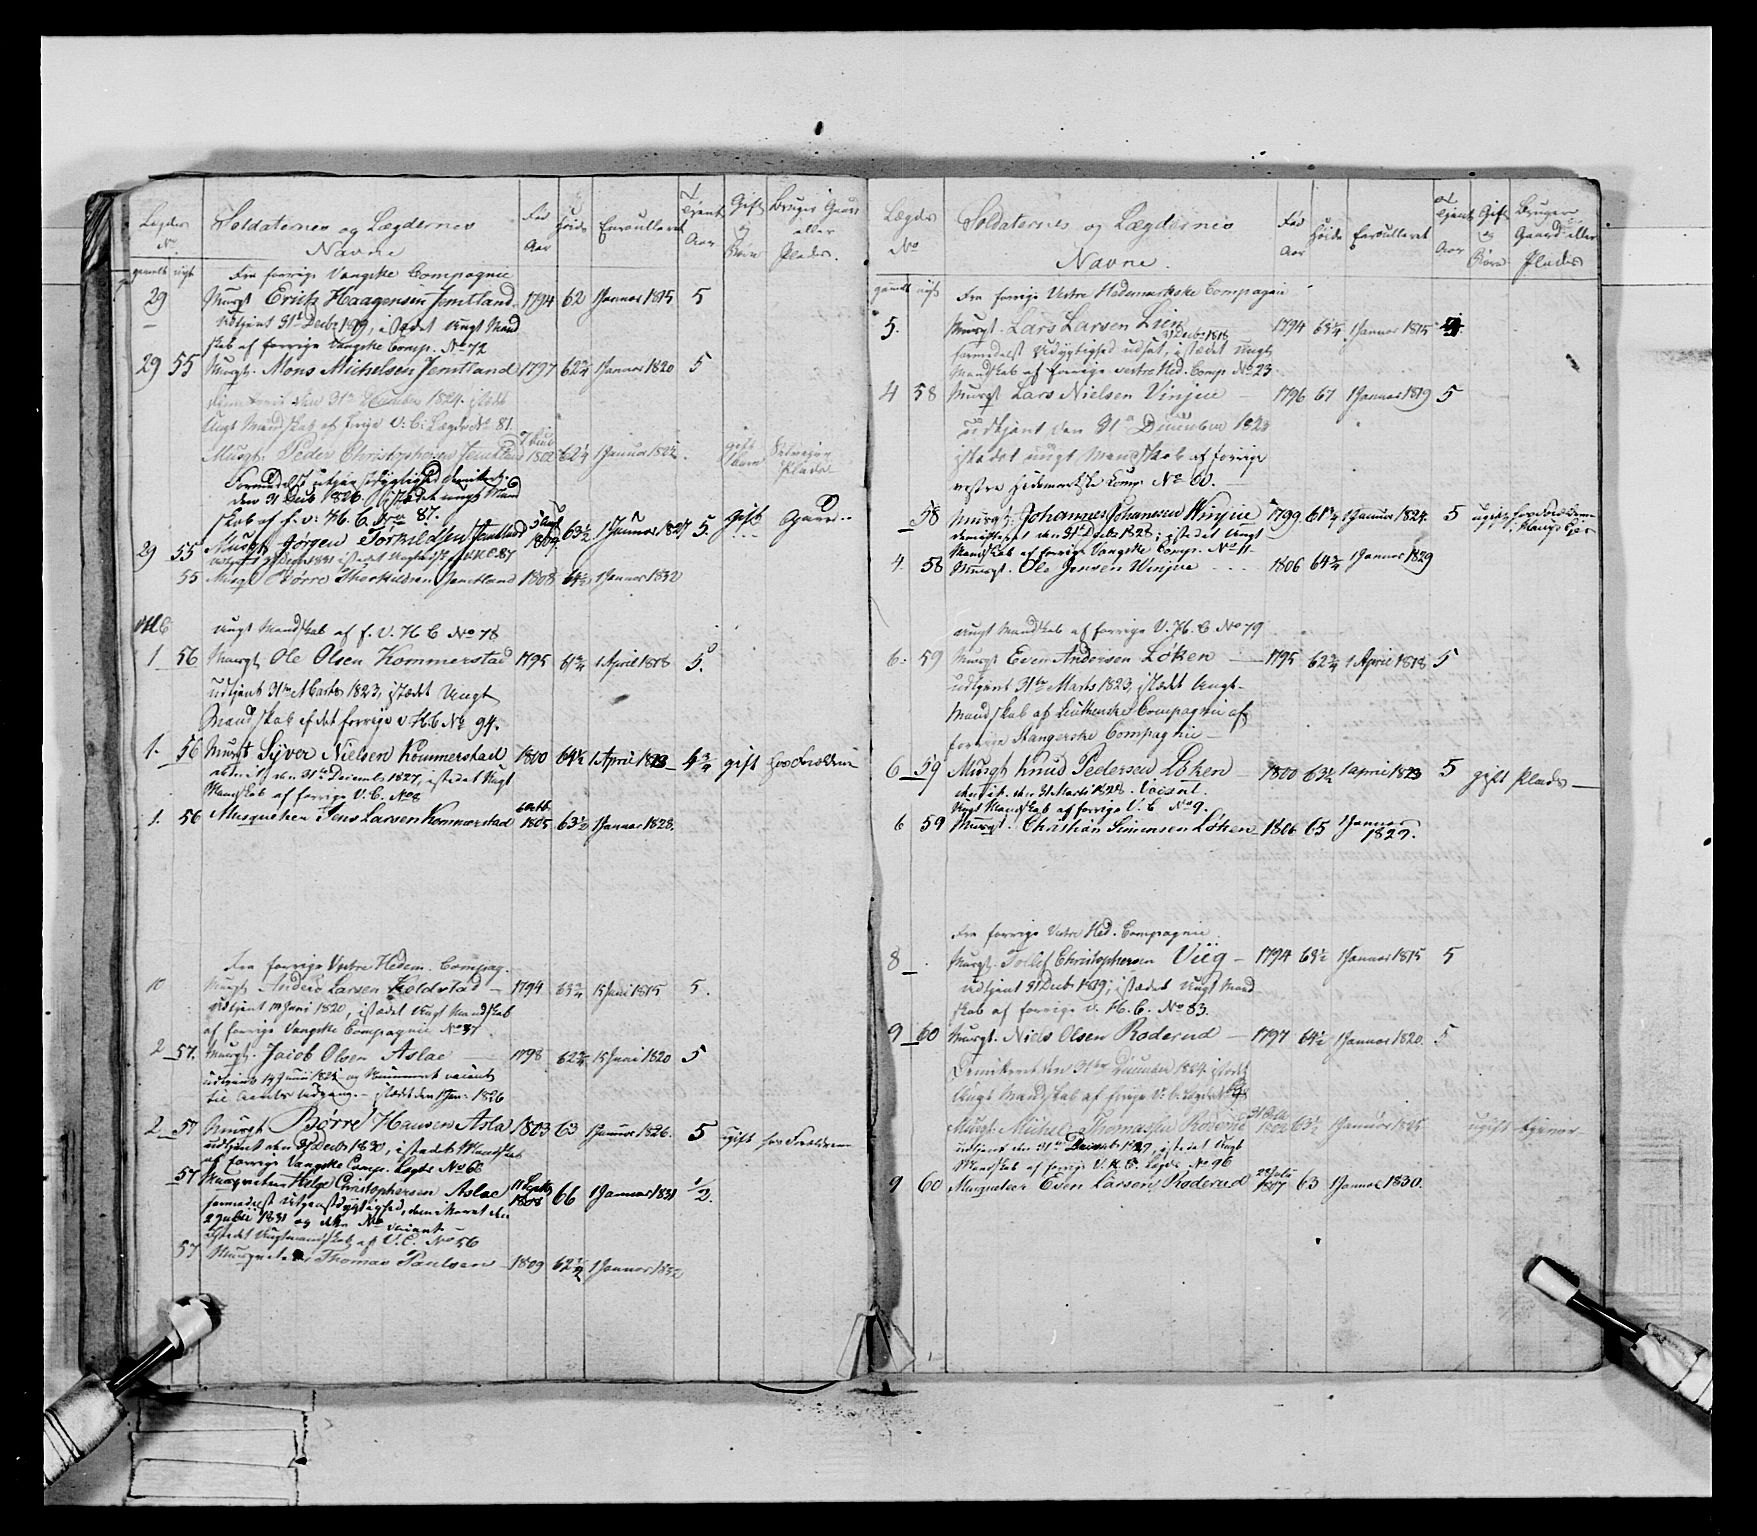 Legdes No
Soldaternes og Lægdernes Navne
Fød Aar
Høide
Enroulleret
Tjent Aar
Gift og Børn
Bruger Gaard eller Plads.
gamelt nyt
Fra forrige Vangske Compagnie
29 Musqt Erich Haagensen Jemtland 1794 62 1 Januar 1815 5
Udtjent 31t Decbr 1819, istædet Ungt Mand
skab af forrige Vangske Comp. No 72
29 55 Musqt. Mons Michelsen Jemtland 1797 62 3/4 1 Januar 1820 5
den 31te December 1824. istædet
Ungt Mandskab af forrige V: C: Lægde No 81
Musqt. Peder Christophersen Jemtland 1802 62 1/4 1 Januar 182 gift
Formedelst utjenstdygtighed demitert
den 31 Decb 1826. istædet ungt Mand
skab af f. v: H. C. Nro 87.
29 55 Musqt Jørgen Torkildsen Jemtland 1804 63 1/2 1 Januar 1827 5. Gift Gaard
istædet Ungt
55 Musqt Børre Thorkildsen Jemtland 1808 64 1/2 1 Januar 1832
Ungt Mandskab af f. V. H C No 78
1 56 Musqt Ole Olsen Kommerstad 1795 61 3/4 1 April 1818 5.
udtjent 31te Marts 1823, istædet Ungt
Mandskab af det forrige v. H. C No 94.
1. 56 Musqt Syver Nielsen Kommerstad 1800 64 1/2 1 April 1823 4 3/4 gift hos Forældrene
den 31te Decemb 1827, istædet Ungt
Mandskab af forrige V. C. No 8
1. 56 Musqueteer Jens Larsen Kommerstad 6 Octb 1805 63 1/2 1 Januar 1828.
Fra forrige Vestre Hedem. Compag.
10 Musqt Anders Larsen Koldstad 1794 63 3/4 15 Juni 1815 5.
Udtjent 14 Juni 1820, istædet Ungt Mandskab
af forrige Vangske Compagnie No 37
2 57. Musqt. Jacob Olsen Aslae 1798 62 3/4 15 Juni 1820 5
udtjent 14 Juni 1825 og Nummeret vacant
til Aarets Udgang. istædet den 1 Jan: 1826
2 57 Musqt Børre Hansen Asla 1803 63 1 Januar 1826. 5 Ugift hos Forældrene
udtjent den 31 Decbr 1830, istædet Mandskab
af forrige Vangske Comp. Legde No 68
57 Musqueteer Helge Christophersen Aslae 1808 66 1 Januar 1831 1/2.
formedelst utjenstdygtighed, demitteret den
1831 og dette No vacant
istædet Ungtmandskab af V. C. No 56
57 Musqueteer Thomas Paulsen 1809 62 1/2 1 Januar 1832
Lægds No
Soldaternes og Lægdernes Navne.
Fød Aar
Høide
Enroulleret
Tjent Aar
Gift og Børn
Bruger Gaard eller Plads
gamelt nyt
Fra forrige Vestre Hedemarkske Compagnie
5. Musqt. Lars Larsen Lien 1794 63 1/4 1 Januar 1815
31 Decbr 1818
formedelst Udygtighed udsat, istædet Ungt
Mandskab af forrige vestre Hed. Comp No 23
4 58 Musqt Lars Nielsen Vinjue 1796 67 1 Januar 1819 5
udtjent den 31te December 1823
istædet ungt Mandskab af forrige
vestre Hedemarkske Comp. No 60.
58 Musqt. Johannes Johannesen Winjue 1799 61 3/4 1 Januar 1824 5 ugift hos Forældrene
den 31t Decbr 1828, istædet Ungt
Mandskab af forrige Vangske Comp. No 11
4. 58 Musqt. Ole Jensen Winjue 1806 64 3/4 1 Januar 1829
Ungt Mandskab af forrige V. H. C. No 79
6. 59 Musqt Even Andersen Løken 1795 62 3/4 1 April 1818 5
udtjent 31te Marts 1823, istædet Ungt-
Mandskab af Leuthenske Compagnie af
forrige Stangeske Compagnie
6 59 Musqt Knud Pedersen Løken 1800 63 1/2 1 april 1823 5 gift Plads
den 31 Marts 1828. Vacant.
Ungt Mandskab af forrige V. C No 9.
6 59 Musqt. Christian Simensen Løken 1806 65 1 Januar 1829.
Fra forrige Vestre Hed. Compagnie
8 Musqt. Tollef Christophersen Viig 1794 63 1/2 1 Januar 1815 5
Udtjent 31 Decb 1819; istædet Ungt Mand
skab af forrige v. H. C. No 83.
9 60 Musqt. Niels Olsen Roderud 1797 64 1/2 1 Januar 1820. 5
Demitteret den 31te December 1824 istædet
Ungt Mandskab af forrige V: C. Legde No
Musqt. Michel Thomassen Roderud 1802 63 1/2 1 Januar 1825 ugift tjener
udtjent den 31te Decemb 1829, istædet Ungt
Mandskab af forrige V. H. C. Legde No 96
9 60 Musqueteer Even Larsen Roderud 1807 63 1 Januar 1830.